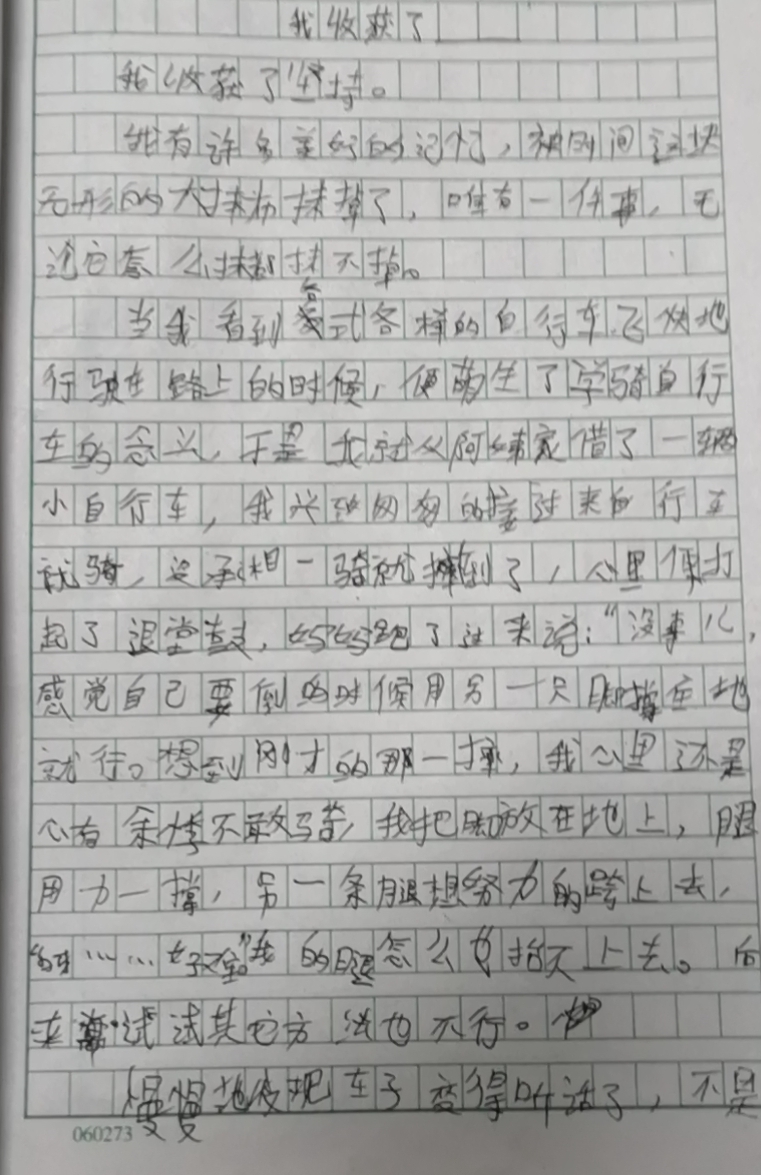 我收获了
我收获了坚持。
我有许多美好的记忆，被时间这块
无形的大抹布抹掉了，唯有一件事，无
论它怎么抹都抹不掉。
当我看到各式各样的自行车飞快地
行驶在路上的时候，便萌生了学骑自行
车的念头，于是我就从阿姨家借了一辆
小自行车，我兴致匆匆的接过来自行车
就骑，没承想一骑就摔倒了，心里便打
起了退堂鼓，妈妈跑了过来说："没事儿，
感觉自己要倒的时候用另一只脚撑在地
就行。想到刚才的那一摔，我心里还是
心有余悸不敢骑，我把脚放在地上，腿
用力一撑，另一条腿想努力的跨上去，
……好难"我的腿怎么也抬不上去。后
来尝试试其它方法也不行。
慢慢地发现车子变得听话了，不是
060273